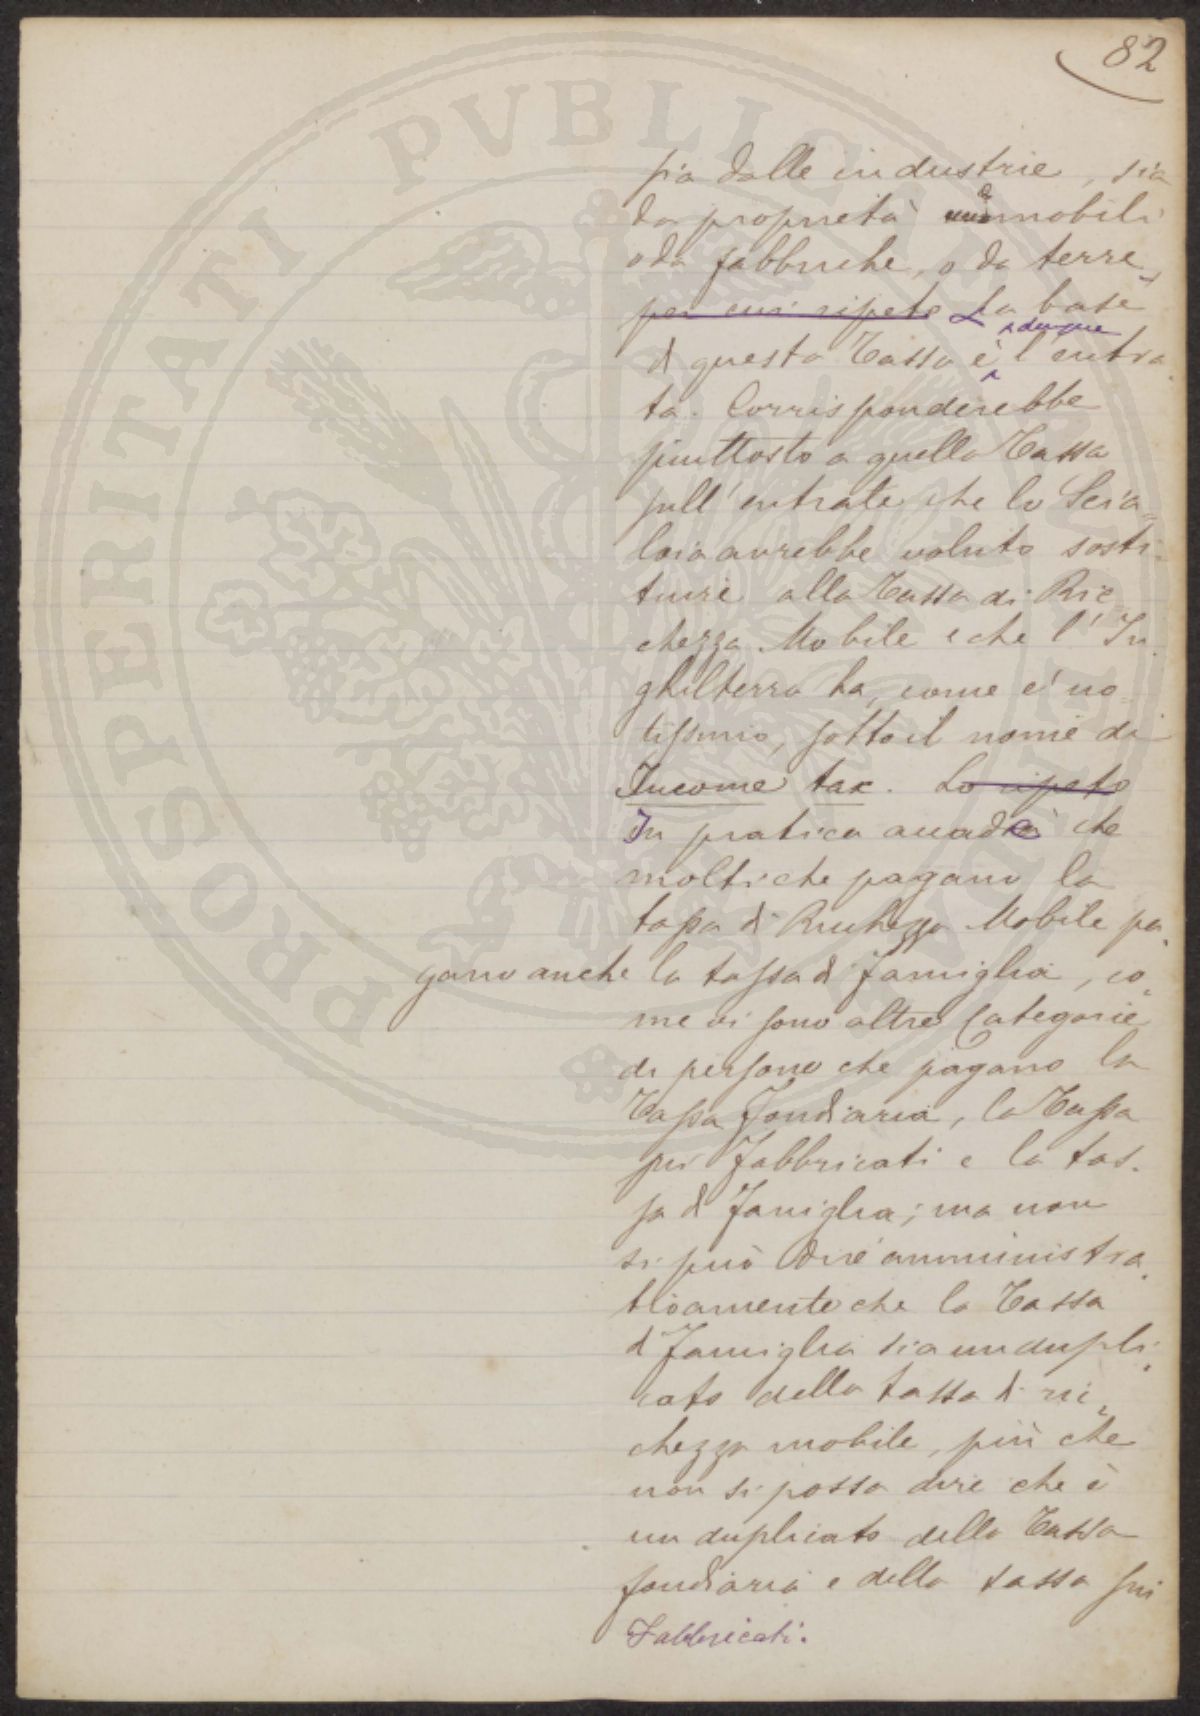 82
sia dalle industrie, sia
da proprietà immobili
o da fabbriche, o da terre,
per cui ripeto La base
di questa Tassa è dunque l'entra
ta. Corrisponderebbe
piuttosto a quella Tassa
sull'entrate che lo Scia=
loia avrebbe voluto sosti
tuire alla Tassa di Ric
chezza Mobile e che l'In
ghilterra ha, come è no
tissimo, sotto il nome di
Income tax. Lo ripeto
In pratica accade che
molti che pagano la
tassa di Ricchezza Mobile pa
gano anche la tassa di famiglia, co
me vi sono altre Categorie
di persone che pagano la
Tassa fondiaria, la Tassa
sui fabbricati e la tas.
sa di famiglia; ma non
si può dire amministra
tivamente che la Tassa
di famiglia sia un dupli
cato della tassa di ric
chezza mobile, più che
non si possa dire che è
un duplicato della Tassa
fondiaria e della tassa sui
Fabbricati.
PROSPERITATI PVBLICAE